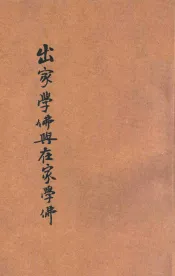 出家學佛與在家學佛